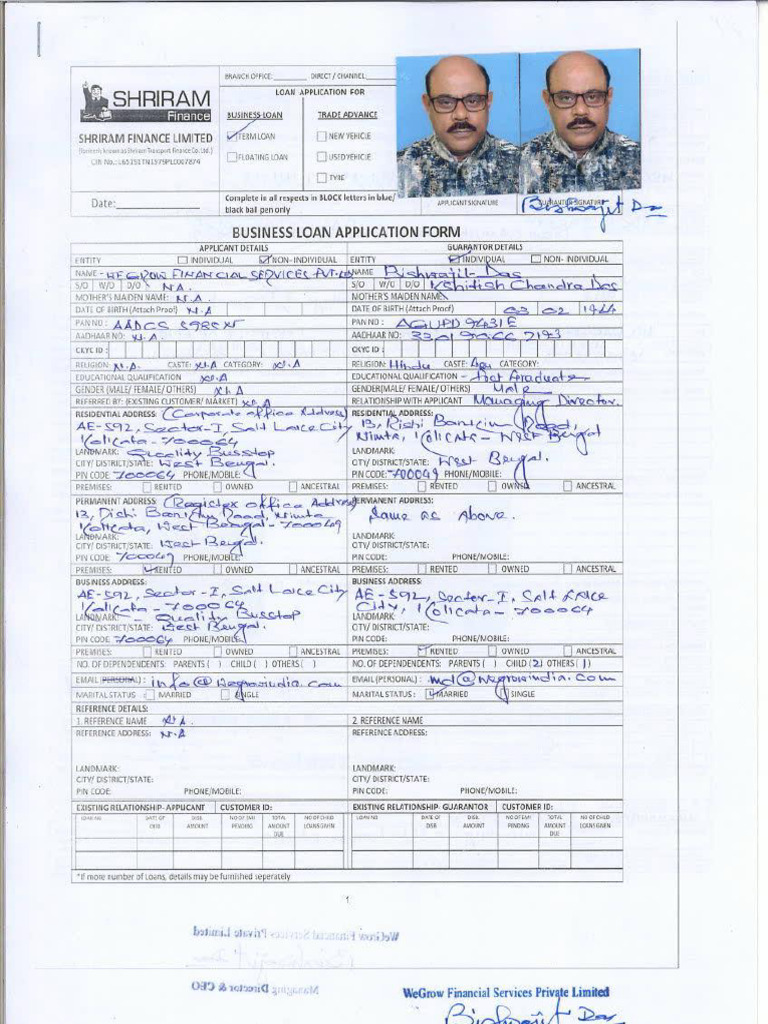 SHRIRAM
Finance
SHRIRAM FINANCE LIMITED
(Formerly known as Shriram Transport Finance Co. Ltd.)
Date:
BRANCH OFFICE: DIRECT / CHANNEL
LOAN APPLICATION FOR
BUSINESS LOAN TRADE ADVANCE
TERM LOAN NEW VEHICLE
FLOATING LOAN USED VEHICLE
TYRE
Complete in all respects in BLOCK letters in blue/
black ball pen only
APPLICANT SIGNATURE GUARANTOR SIGNATURE
Biswajit Das
BUSINESS LOAN APPLICATION FORM
APPLICANT DETAILS GUARANTOR DETAILS
ENTITY INDIVIDUAL NON- INDIVIDUAL ENTITY INDIVIDUAL NON- INDIVIDUAL
NAME - WEGROW FINANCIAL SERVICES PVT. NAME Bishwajit Das
S/O W/O D/O N.A. S/O W/O D/O Kshitish Chandra Das
MOTHER'S MAIDEN NAME: N.A MOTHER'S MAIDEN NAME
DATE OF BIRTH (Attach Proof) N.A DATE OF BIRTH (Attach Proof) 03 02
PAN NO : PAN NO : AGUPD9431E
AADHAAR NO: N.A. AADHAAR NO:
CKYC ID : CKYC ID :
RELIGION: N.A. CASTE: N.A CATEGORY: N.A RELIGION: Hindu CASTE: CATEGORY:
EDUCATIONAL QUALIFICATION N.A EDUCATIONAL QUALIFICATION - Graduate
GENDER (MALE/ FEMALE/ OTHERS) N.A GENDER(MALE/ FEMALE/ OTHERS) Male
REFERRED BY: (EXISTING CUSTOMER/ MARKET) N.A RELATIONSHIP WITH APPLICANT Managing Director.
RESIDENTIAL ADDRESS: (Corporate office Address) RESIDENTIAL ADDRESS:
AE-592, Sector-I, Salt Lake City 13, Rishi Bankim Road,
Kolkata-700064 Nimta, Kolkata - West Bengal
LANDMARK: Quality Busstop LANDMARK:
CITY/ DISTRICT/STATE: West Bengal. CITY/ DISTRICT/STATE: West Bengal.
PIN CODE 700064 PHONE/MOBILE: PIN CODE: 700049 PHONE/MOBILE:
PREMISES: RENTED OWNED ANCESTRAL PREMISES: RENTED OWNED ANCESTRAL
PERMANENT ADDRESS (Register office Address) PERMANENT ADDRESS:
13, Rishi Bankim Road, Nimta Same as Above.
Kolkata, West Bengal - 700049
LANDMARK: LANDMARK:
CITY/ DISTRICT/STATE: West Bengal. CITY/ DISTRICT/STATE:
PIN CODE 700049 PHONE/MOBILE: PIN CODE: PHONE/MOBILE:
PREMISES: RENTED OWNED ANCESTRAL PREMISES: RENTED OWNED ANCESTRAL
BUSINESS ADDRESS: BUSINESS ADDRESS:
AE-592, Sector-I, Salt Lake City AE-592, Sector-I, Salt Lake
Kolkata-700064 City, Kolkata - 700064
LANDMARK: Quality Busstop LANDMARK:
CITY/ DISTRICT/STATE: West Bengal. CITY/ DISTRICT/STATE:
PIN CODE 700064 PHONE/MOBILE: PIN CODE: PHONE/MOBILE:
PREMISES: RENTED OWNED ANCESTRAL PREMISES: RENTED OWNED ANCESTRAL
NO. OF DEPENDEDENTS: PARENTS ( ) CHILD ( ) OTHERS ( ) NO. OF DEPENDEDENTS: PARENTS ( ) CHILD (2) OTHERS (1)
EMAIL (PERSONAL) : info@wegrowindia.com EMAIL (PERSONAL) : md@wegrowindia.com
MARITAL STATUS : MARRIED SINGLE MARITAL STATUS : MARRIED SINGLE
REFERENCE DETAILS:
1. REFERENCE NAME N.A. 2. REFERENCE NAME
REFERENCE ADDRESS: N.A REFERENCE ADDRESS:
LANDMARK: LANDMARK:
CITY/ DISTRICT/STATE: CITY/ DISTRICT/STATE:
PIN CODE: PHONE/MOBILE: PIN CODE: PHONE/MOBILE:
EXISTING RELATIONSHIP- APPLICANT CUSTOMER ID: EXISTING RELATIONSHIP- GUARANTOR CUSTOMER ID:
LOAN NO DATE OF DISB DISB. AMOUNT NO OF EMI PENDING TOTAL AMOUNT DUE NO OF CHILD LOANS GIVEN LOAN NO DATE OF DISB DISB. AMOUNT NO OF EMI PENDING TOTAL AMOUNT DUE NO OF CHILD LOANS GIVEN
*If more number of Loans, details may be furnished seperately
WeGrow Financial Services Private Limited
Managing Director & CEO
WeGrow Financial Services Private Limited
Bishwajit Das